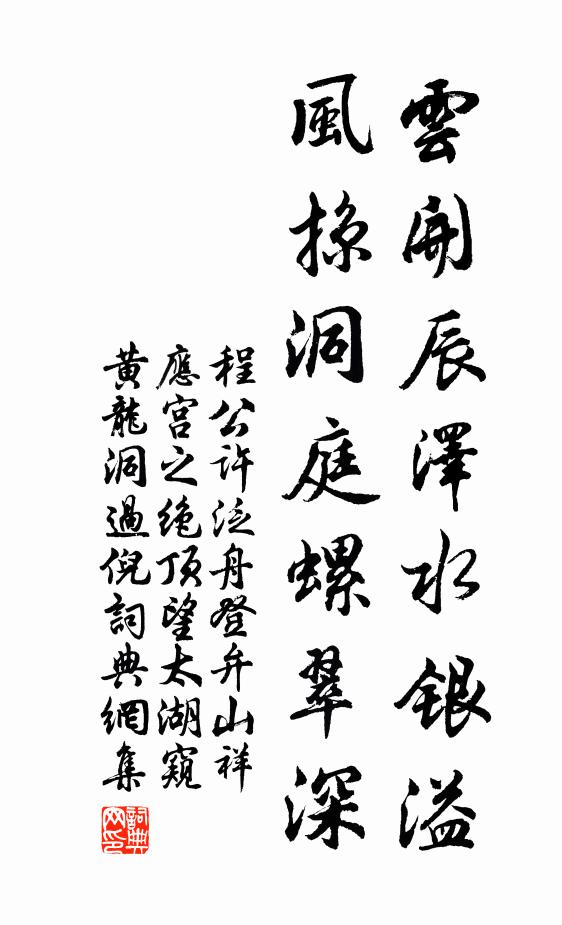 雲開辰澤水銀溢
風掠洞庭螺翠深
程公許泛舟登弁山祥
應宮之絶頂望太湖窺
黃龍洞過倪詞典網集
詞典网印